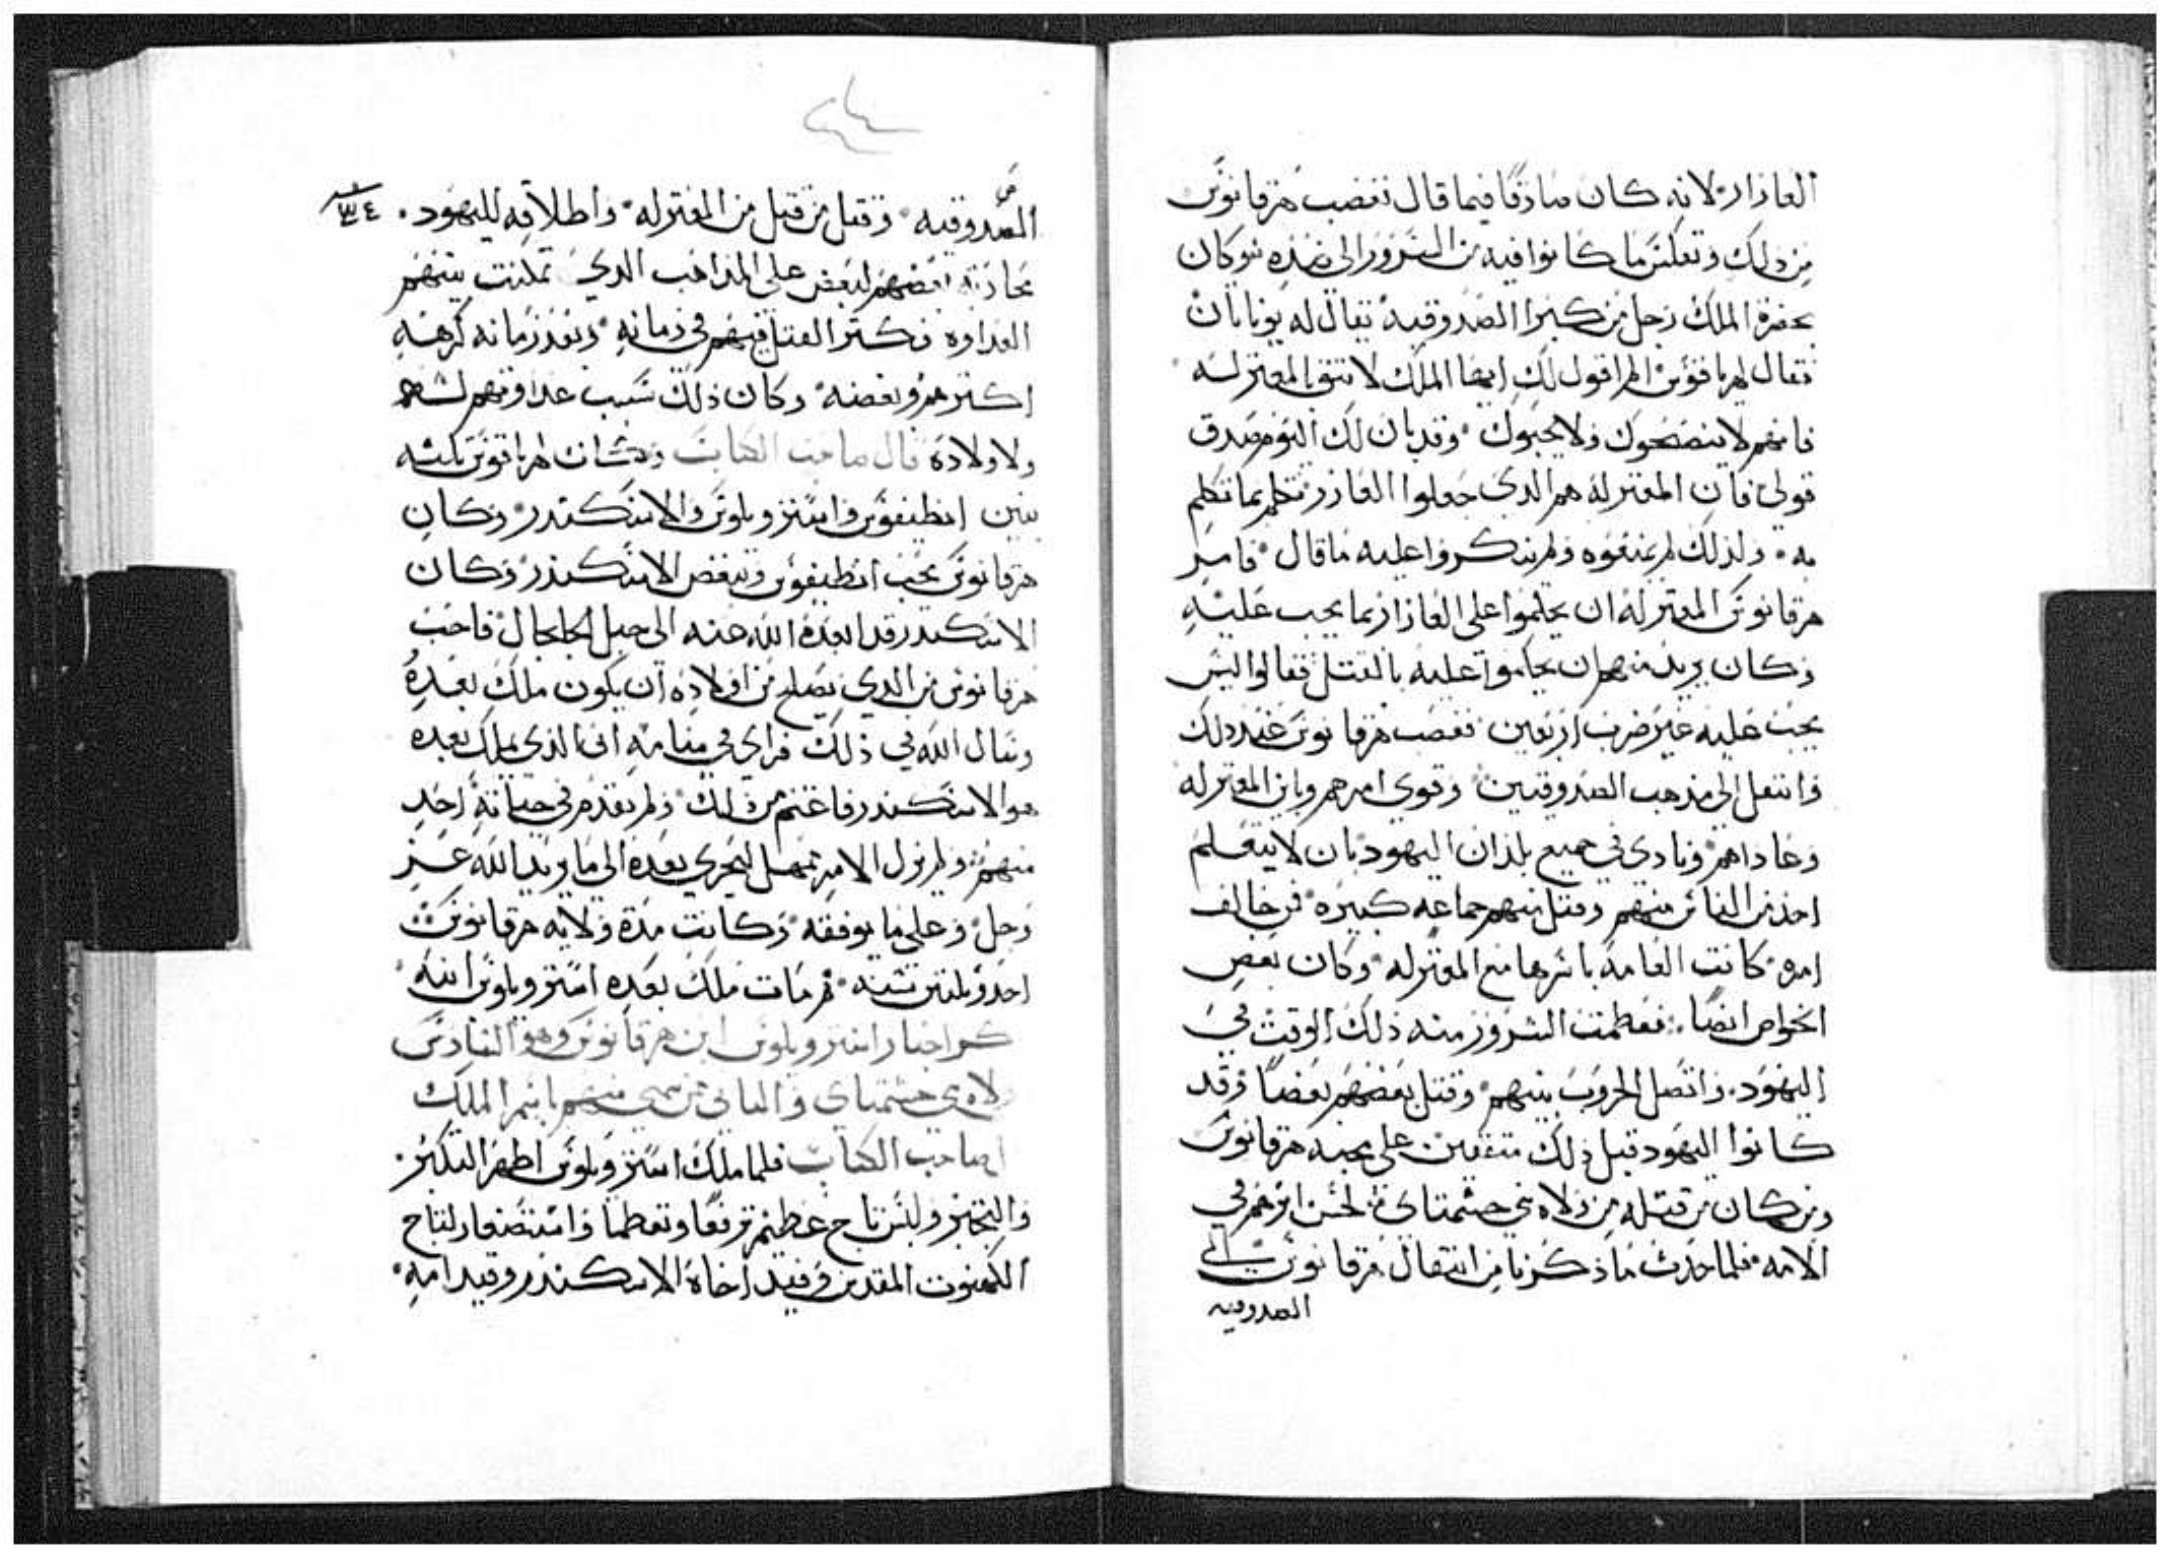 العازار لانه كان صادقا فيما قال فغضب هرقانوس
من ذلك وتعكس ما كانوا فيه من السرور الى ضده وكان
بحضرة الملك رجل من كبرا الصدوقيه يقال له يوناتان
فقال لهرقانوس الم اقول لك ايها الملك لا تثق بالمعتزله
فانهم لا ينصحوك ولا يحبوك وقد بان لك اليوم صدق
قولي فان المعتزله هم الدي جعلوا العازر تكلم بما تكلم
به ولذلك لم يمنعوه ولم ينكروا عليه ما قال فامر
هرقانوس المعتزله ان يحكموا على العازار بما يجب عليه
وكان يريد منهم ان يحكموا عليه بالقتل فقالوا ليس
يجب عليه غير ضرب اربعين فغضب هرقانوس عند دلك
وانتقل الى مذهب الصدوقيين وقوي امرهم وباين المعتزله
وعاداهم ونادى في جميع بلدان اليهود بان لا يتعلم
احد من الناس منهم وقتل منهم جماعه كبيره ممن خالف
امره كانت العامة باسرها مع المعتزله وكان بعض
الخواص ايضا فعظمت الشرور منه ذلك الوقت في
اليهود واتصل الحروب بينهم وقتل بعضهم بعضا وقد
كانوا اليهود قبل ذلك متفقين على محبة هرقانوس
ومن كان من قبله من ولاه بني حشمناي لحسن اثرهم في
الامه فلما حدث ما ذكرنا من انتقال هرقانوس الى
الصدوقيه
الصدوقيه وقتل من قتل من المعتزله واطلاقه لليهود
٣٤
محاربة بعضهم لبعض على المذاهب الدي تمكنت بينهم
العداوه وكثر القتل فيهم في زمانه وبعد زمانه كرهه
اكثرهم وبغضه وكان ذلك سبب عداوتهم له
ولاولاده قال صاحب الكتاب وكان لهرقانوس ثلثه
بنين انطيغوس واستروبلوس والاسكندر وكان
هرقانوس يحب انطيغوس ويبغض الاسكندر وكان
الاسكندر قد ابعده الله عنه الى جبل الجلجال فاحب
هرقانوس من الدي يصلح من اولاده ان يكون ملك بعده
وسال الله في ذلك فراي في منامه ان الذي يملك بعده
هو الاسكندر فاغتم من ذلك ولم يقدم في حياته احد
منهم ولم يزل الامر مهمل ليجري بعده الى ما يريد الله عز
وجل وعلى ما يوفقه وكانت مدة ولايه هرقانوس
احد وثلثين سنه ثم مات ملك بعده استروبلوس ابنه
ذكر اخبار استروبلوس ابن هرقانوس وهو السادس
ولاه بني حشمناي والثاني ممن سمي منهم باسم الملك
صاحب الكتاب فلما ملك استروبلوس اظهر التكبر
والتجبر ولبس تاج عظيم ترفعا وتعظما واستصغار لتاج
الكهنوت المقدس وقيد اخاه الاسكندر وقيد امه